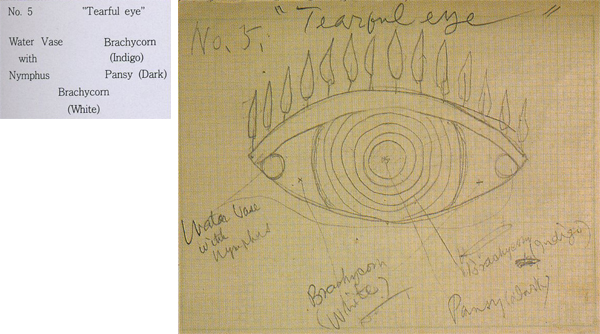 No. 5 "Tearful eye"
Water Vase Brachycorn
with (Indigo)
Nymphus Pansy (Dark)
Brachycorn
(White)
No. 5. "Tearful eye"
Water Vase
with
Nymphus
Brachycorn
(White)
Brachycorn (Indigo)
Pansy (Dark)